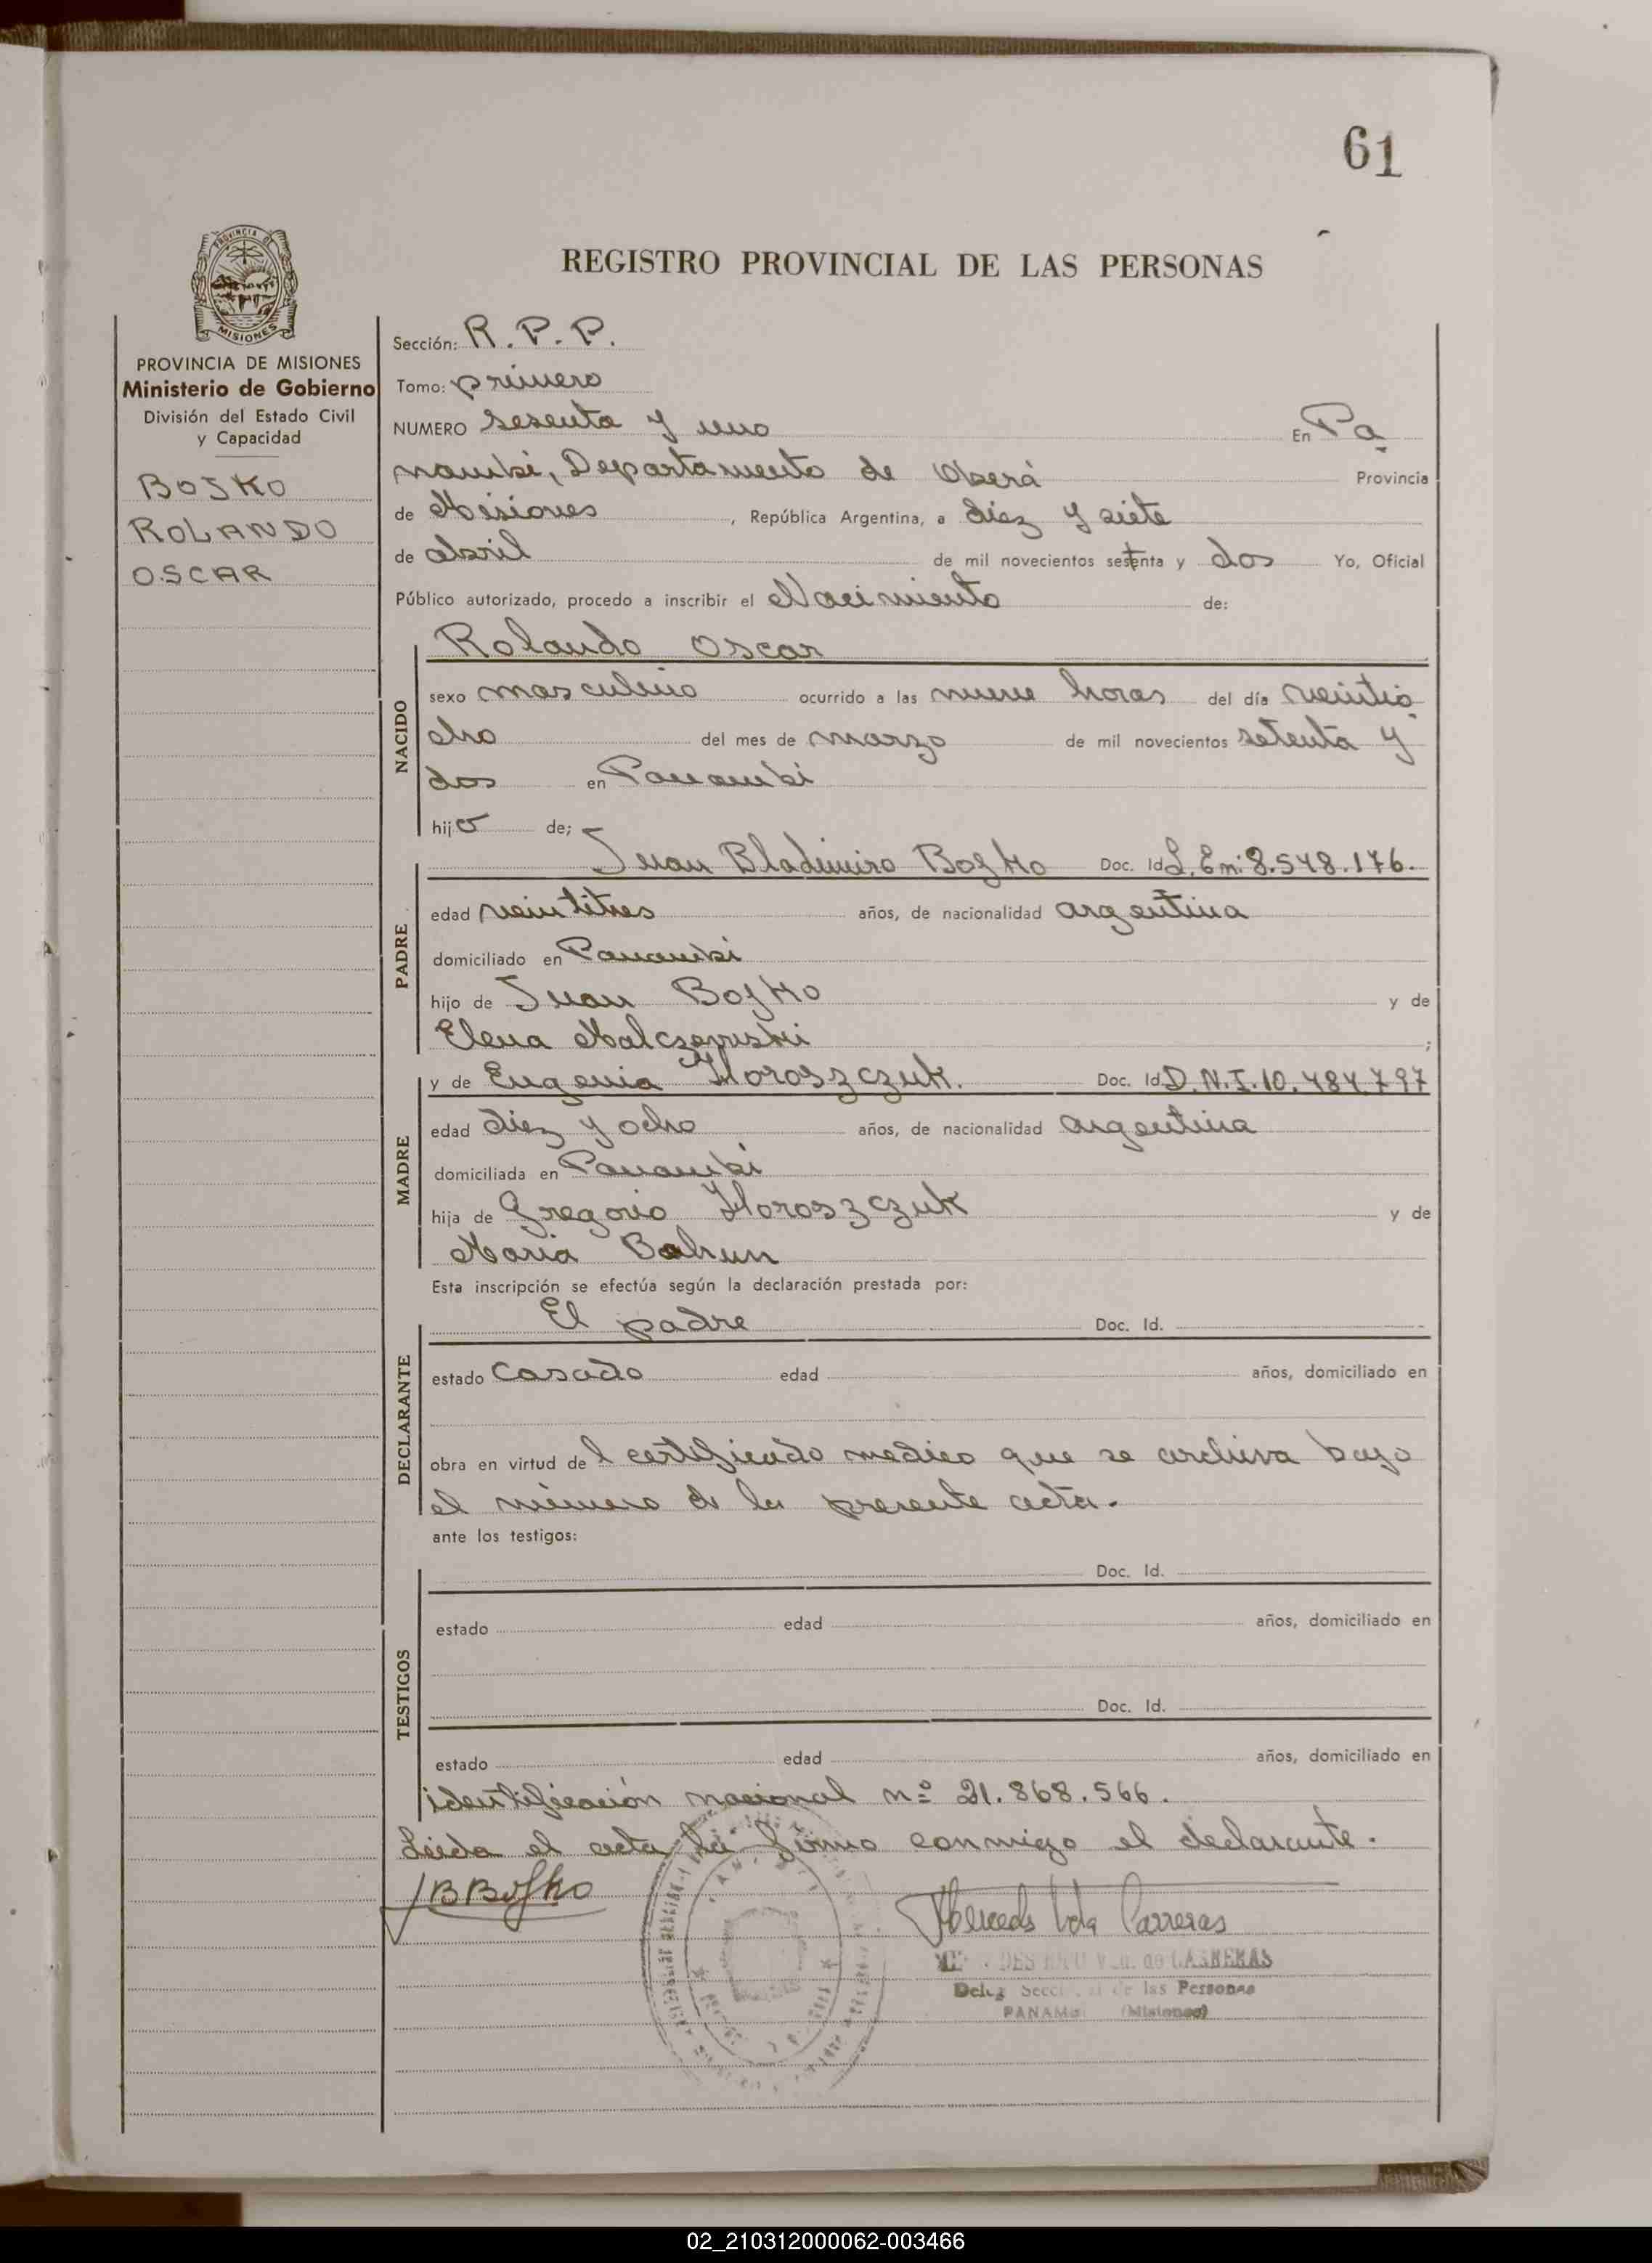 61
PROVINCIA DE
MISIONES
REGISTRO PROVINCIAL DE LAS PERSONAS
PROVINCIA DE MISIONES
Ministerio de Gobierno
División del Estado Civil
y Capacidad
BOJKO
ROLANDO
OSCAR
Sección: R. P. P.
Tomo: primero
NUMERO sesenta y uno En Pa
nambí, Departamento de Oberá Provincia
de Misiones, República Argentina, a diez y siete
de abril de mil novecientos setenta y dos Yo, Oficial
Público autorizado, procedo a inscribir el Nacimiento de:
Rolando Oscar
NACIDO
sexo masculino ocurrido a las nueve horas del día veintio
cho del mes de marzo de mil novecientos setenta y
dos en Panambí
hijo de;
Juan Bladimiro Bojko Doc. Id. L. En: 8.548.176.
PADRE
edad veintitres años, de nacionalidad argentina
domiciliado en Panambí
hijo de Juan Bojko y de
Elena Malczewski ;
y de Eugenia Horoszczuk. Doc. Id. D. N. I. 10.484.797
MADRE
edad diez y ocho años, de nacionalidad argentina
domiciliada en Panambí
hija de Gregorio Horoszczuk y de
Maria Bahun
Esta inscripción se efectúa según la declaración prestada por:
El padre Doc. Id.
DECLARANTE
estado casado edad años, domiciliado en
obra en virtud del certificado medico que se archiva bajo
el número de la presente acta.
ante los testigos:
Doc. Id.
TESTIGOS
estado edad años, domiciliado en
Doc. Id.
estado edad años, domiciliado en
identificación nacional nº 21.868.566.
Leida el acta la firma conmigo el declarante.
JBBojko
Mercedes Vda Carreras
Vda. de CARRERAS
de las Personas
PANAMBI (Misiones)
02_210312000062-003466